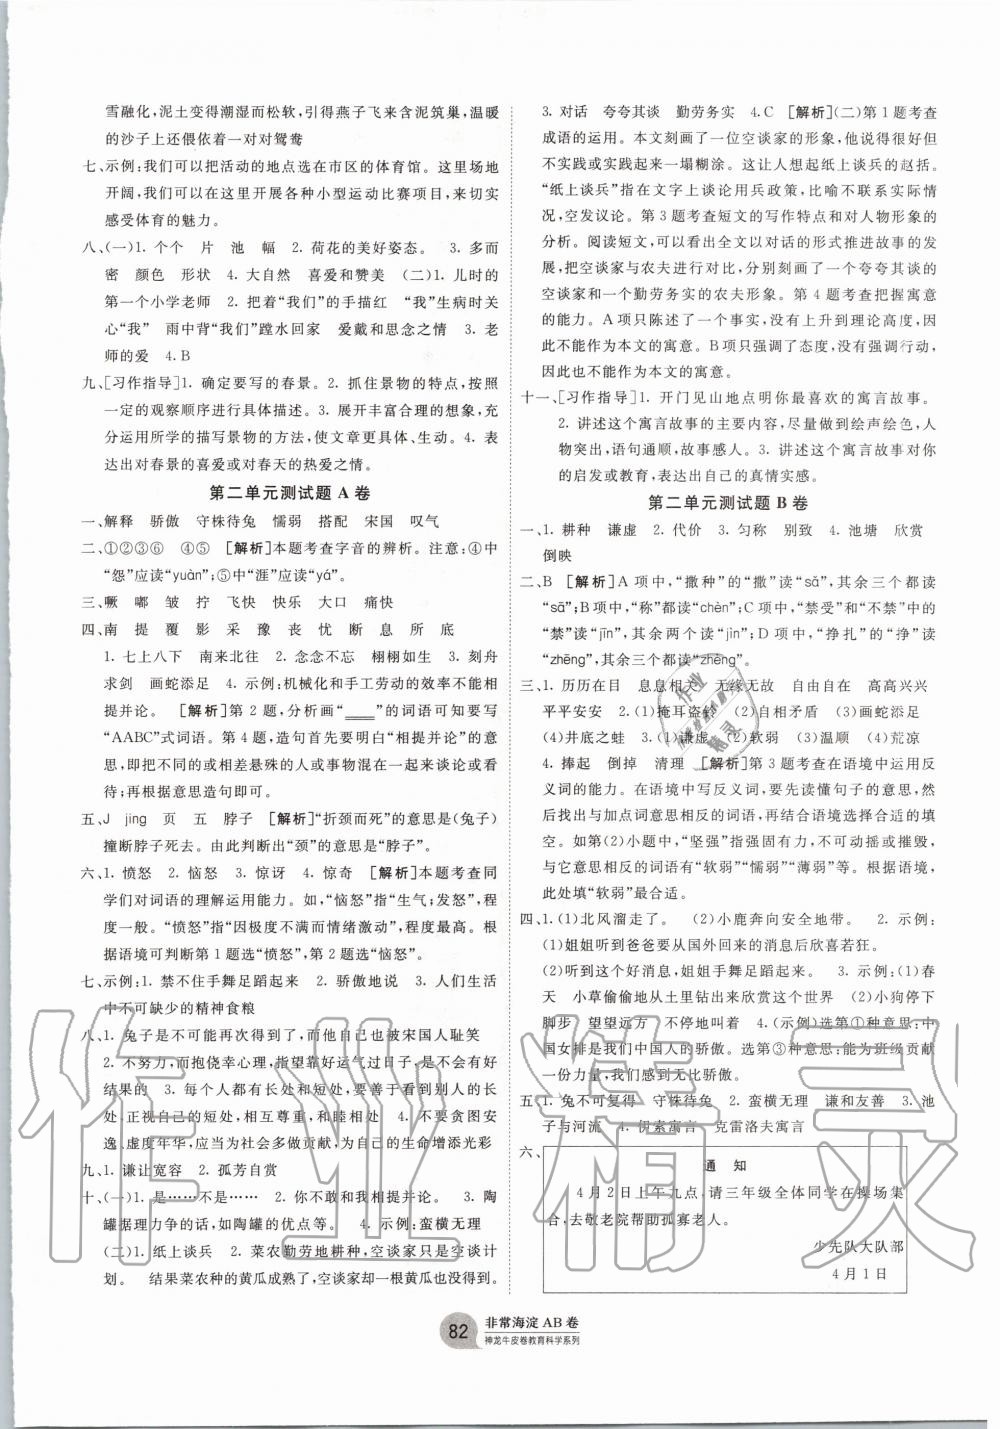 雪融化,泥土变得潮湿而松软,引得燕子飞来含泥筑巢,温暖
的沙子上还偎依着一对对鸳鸯
七、示例:我们可以把活动的地点选在市区的体育馆。这里场地
开阔,我们可以在这里开展各种小型运动比赛项目,来切实
感受体育的魅力。
八、(一)1. 个个 片 池 幅 2. 荷花的美好姿态。 3. 多而
密 颜色 形状 4. 大自然 喜爱和赞美 (二)1. 儿时的
第一个小学老师 2. 把着“我们”的手描红 “我”生病时关
心“我” 雨中背“我们”蹚水回家 爱戴和思念之情 3. 老
师的爱 4.B
九、[习作指导]1. 确定要写的春景。2. 抓住景物的特点,按照
一定的观察顺序进行具体描述。3. 展开丰富合理的想象,充
分运用所学的描写景物的方法,使文章更具体、生动。4. 表
达出对春景的喜爱或对春天的热爱之情。
第二单元测试题 A 卷
一、解释 骄傲 守株待兔 懦弱 搭配 宋国 叹气
二、①②③⑥ ④⑤ [解析]本题考查字音的辨析。注意:④中
“怨”应读“yuàn”;⑤中“涯”应读“yá”。
三、噘 嘟 皱 拧 飞快 快乐 大口 痛快
四、南 提 覆 影 采 豫 丧 忧 断 息 所 底
1. 七上八下 南来北往 2. 念念不忘 栩栩如生 3. 刻舟
求剑 画蛇添足 4. 示例:机械化和手工劳动的效率不能相
提并论。 [解析]第 2 题,分析画“____”的词语可知要写
“AABC”式词语。第 4 题,造句首先要明白“相提并论”的意
思,即把不同的或者相差悬殊的人或事物混在一起来谈论或看
待;再根据意思造句即可。
五、J jǐng 页 五 脖子 [解析]“折颈而死”的意思是(兔子)
撞断脖子死去。由此可判断出“颈”的意思是“脖子”。
六、1. 愤怒 2. 恼怒 3. 惊讶 4. 惊奇 [解析]本题考查同
学们对词语的理解运用能力。如,“恼怒”指“生气;发怒”,程
度较轻。“愤怒”指“因极度不满而情绪激动”,程度较重。
根据语境可判断第 1 题选“愤怒”,第 2 题选“恼怒”。
七、示例:1. 禁不住手舞足蹈起来 2. 骄傲地说 3. 人们生活
中不可缺少的精神食粮
八、1. 兔子是不可能再次得到了,而他自己也被宋国人耻笑
2. 不努力,而抱侥幸心理,指望靠好运气过日子,是不会有好
结果的 3. 每个人都有长处和短处,我们要看到别人的长
处,正视自己的短处,相互尊重,和睦相处 4. 不要贪图安
逸、虚度年华,应当为社会多做贡献,为自己的生命增添光彩
九、1. 谦让宽容 2. 孤芳自赏
十、(一)1. 是……不是…… 2. 你不敢和我相提并论。 3. 陶
罐据理力争的话,如陶罐的优点等。 4. 示例:蛮横无理
(二)1. 纸上谈兵 2. 菜农勤劳地耕种,空谈家只是空谈计
划。 结果菜农种的黄瓜成熟了,空谈家却一根黄瓜也没得到。
3. 对话 夸夸其谈 勤劳务实 4.C [解析](二)第 1 题考查
成语的运用。本文刻画了一位空谈家的形象,他说得很好,但
不实践或实践起来一塌糊涂。这让人想起纸上谈兵的赵括。
“纸上谈兵”指在文字上谈论用兵政策,比喻不联系实际情况,
空发议论。第 3 题考查短文的写作特点和对人物形象的
分析。阅读短文,可以看出全文以对话的形式推进故事的发
展,把空谈家与农夫进行对比,分别刻画了一个夸夸其谈的
空谈家和以勤劳务实的农夫形象。第 4 题考查把握寓意
的能力。A 项只陈述了一个事实,没有上升到理论高度,因
此不能作为本文的寓意。B 项只强调了态度,没有强调行动,
因此也不能作为本文的寓意。
十一、[习作指导]1. 开门见山地点明你最喜欢的寓言故事。
2. 讲述这个寓言故事的主要内容,尽量做到绘声绘色,人
物突出,语句通顺,故事感人。3. 讲述这个寓言故事对你
的启发或教育,表达出自己的真情实感。
第二单元测试题 B 卷
一、1. 耕种 谦虚 2. 代价 3. 匀称 别致 4. 池塘 欣赏
倒映
二、B [解析]A 项中,“撒种”的“撒”读“sǎ”,其余三个都读
“sā”;B 项中,“称”都读“chèn”;C项中,“禁受”和“不禁”中的
“禁”读“jīn”,其余两个读“jìn”;D 项中,“挣扎”的“挣”读
“zhēng”,其余三个都读“zhèng”。
三、1. 历历在目 息息相关 无缘无故 自由自在 高高兴兴
平平安安 2.(1)掩耳盗铃 (2)自相矛盾 (3)画蛇添足
(4)井底之蛙 3.(1)谦虚 (2)软弱 (3)温顺 (4)荒凉
4. 捧起 倒掉 清理 [解析]第 3 题考查在语境中运用反
义词的能力。在语境中写反义词,要先读懂句子的意思,然
后找出与加点词意思相反的词语,再结合语境选择合适的填
空。如第(2)小题中,“坚强”指“强固有力,不可动摇或摧毁”,
与它意思相反的词语有“软弱”“懦弱”“薄弱”等。根据语境,
此处填“软弱”最合适。
四、1.(1)北风溜走了。 (2)小鹿奔向安全地带。 2. 示例:
(1)姐姐听到爸爸要从国外回来的消息后欣喜若狂。
(2)听到这个好消息,姐姐手舞足蹈起来。 3. 示例:(1)春
天 小草偷偷地从土里钻出来欣赏这个世界 (2)小狗停下
脚步 望望远方 不停地叫着 4.(示例)选第①种意思:中
国女排是我们中国人的骄傲。选第③种意思:能为班级贡献
一份力量,我们感到无比骄傲。
五、1. 兔不可复得 守株待兔 2. 蛮横无理 谦和友善 3. 池
子与河流 4. 伊索寓言 克雷洛夫寓言
六、
通 知
4 月 2 日上午九点,请三年级全体同学在操场集
合,去敬老院帮助孤寡老人。
少先队大队部
4 月 1 日
82
非常海淀 AB 卷
神龙牛皮卷教育科学系列
作业精灵